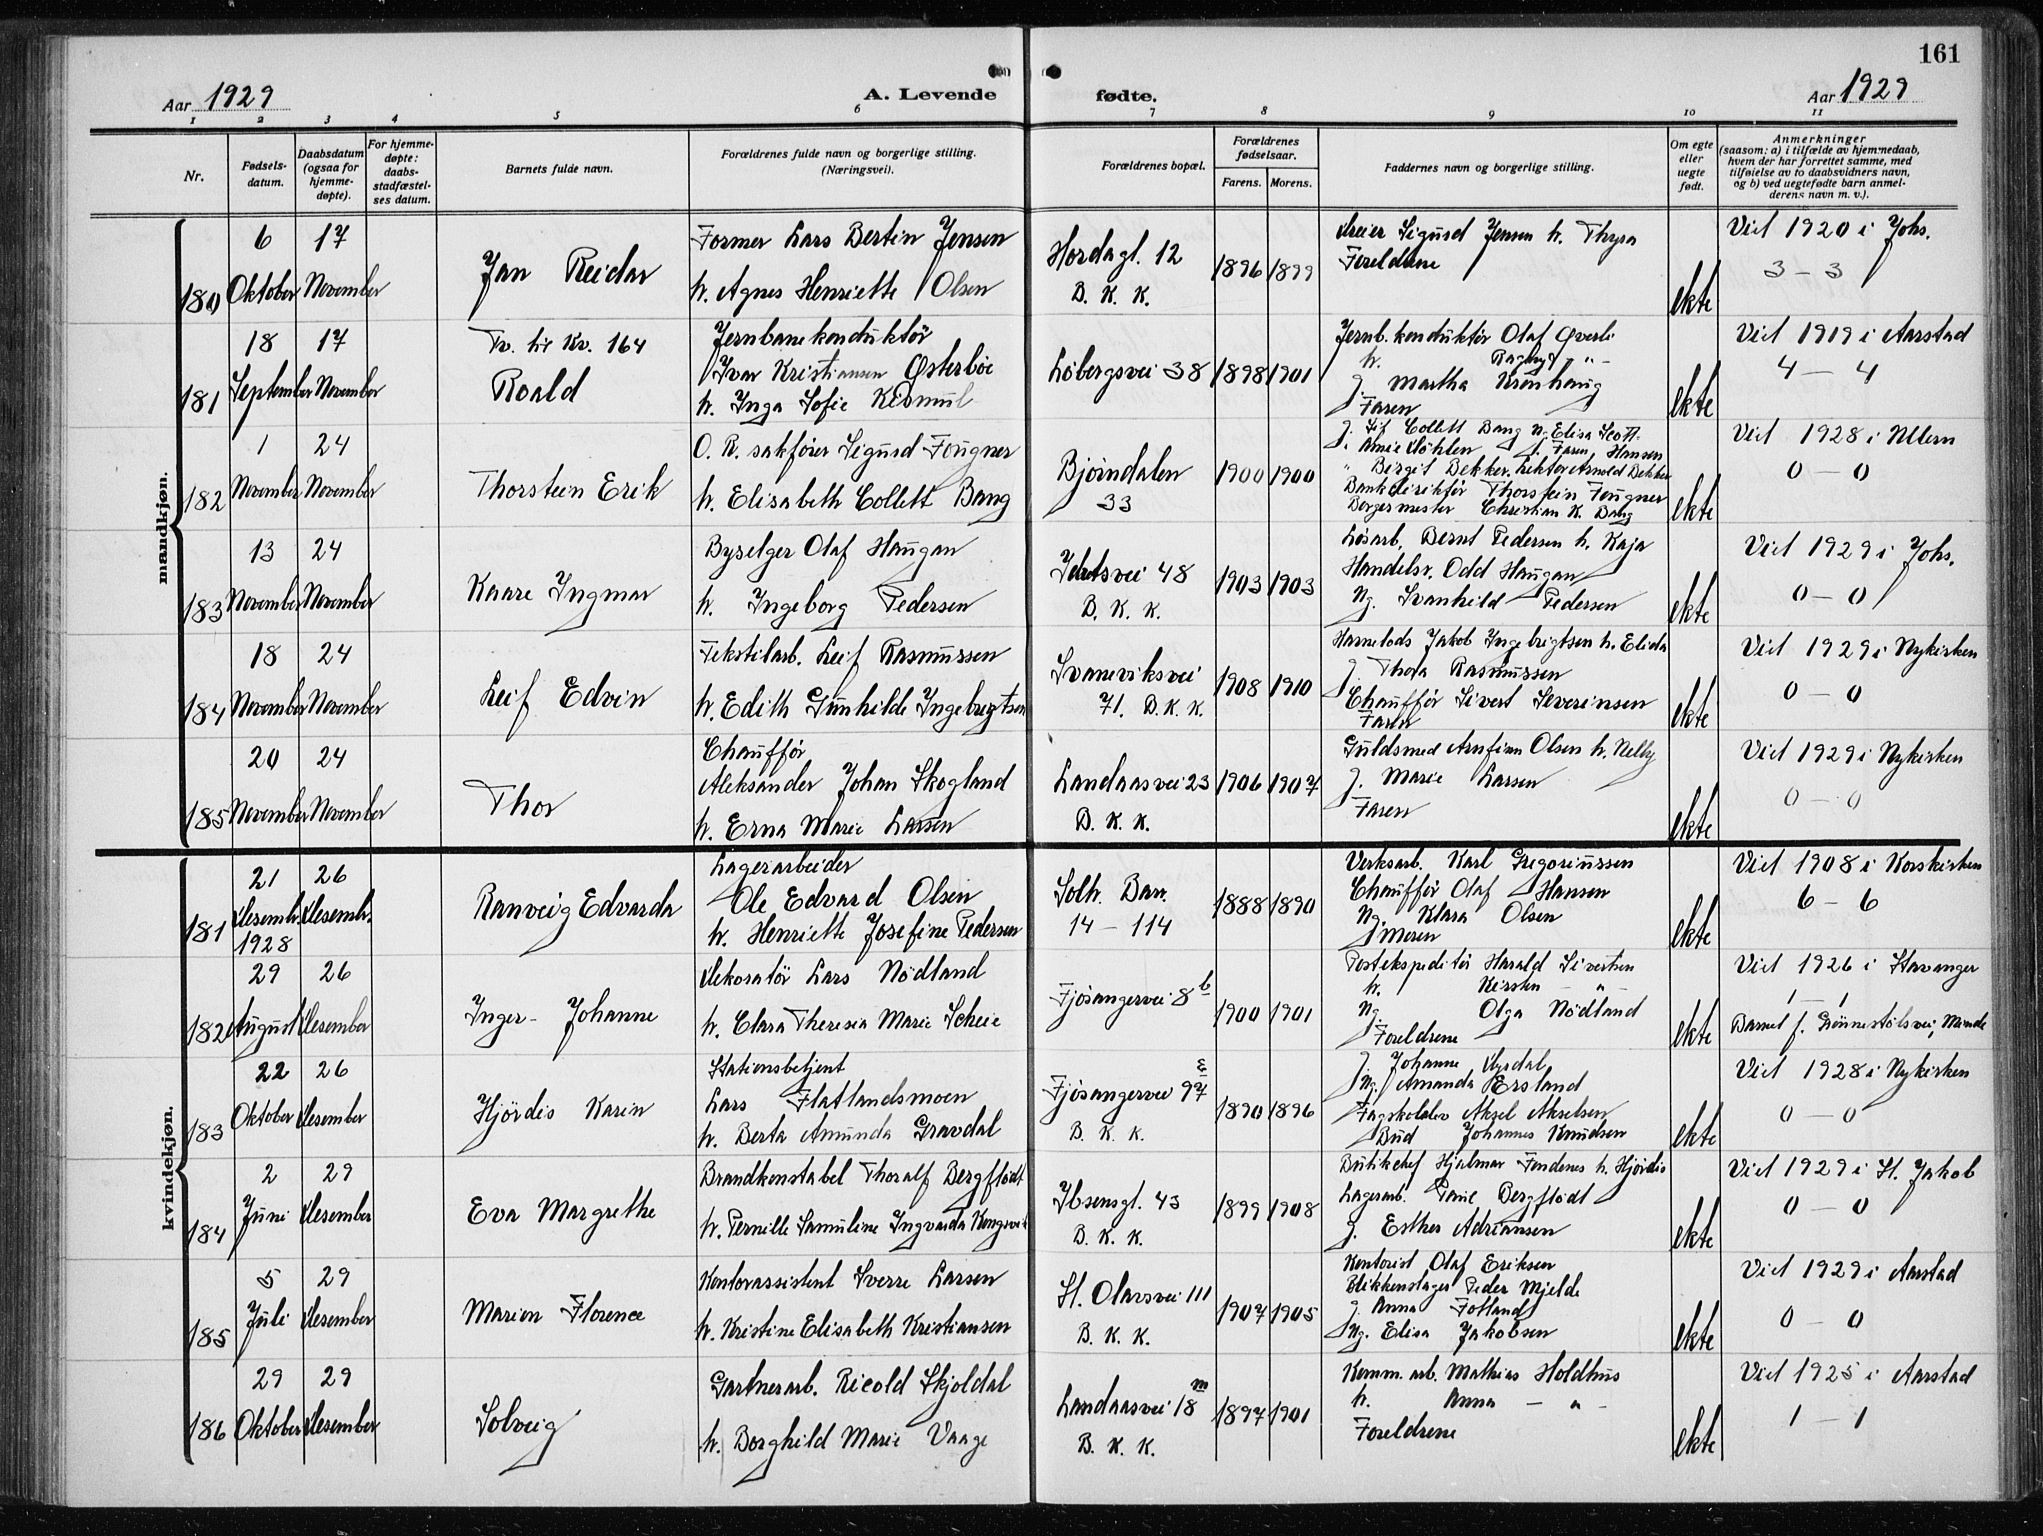 161
Aar 1929
A. Levende fødte.
Aar 1929
1 2 3 4 5 6 7 8 9 10 11
Nr.
Fødsels-
datum.
Daabsdatum
(ogsaa for
hjemme-
døpte).
For hjemme-
døpte:
daabs-
stadfæstel-
ses datum.
Barnets fulde navn.
Forældrenes fulde navn og borgerlige stilling.
(Næringsvei).
Forældrenes bopæl.
Forældrenes
fødselsaar.
Farens. Morens.
Faddernes navn og borgerlige stilling.
Om egte
eller
uegte
født.
Anmerkninger
(saasom: a) i tilfælde av hjemmedaab,
hvem der har forrettet samme, med
tilføielse av to daabsvidners navn,
og b) ved uegtefødte barn anmel-
derens navn m. v.).
mandkjøn.
180
6
Oktober
17
November
Jan Reidar
Former Lars Bertin Jensen
h. Agnes Henriette Olsen
Hordagt. 12
B. K. K.
1896 1899
Dreier Sigurd Jensen h. Thyra
Foreldrene
ekte
Viet 1920 i Johs.
3 – 3
181
18
September
17
November
Tv. til Kv. 164
Roald
Jernbanekonduktör
Ivar Kristiansen Østerböe
h. Inga Sofie Kismul
Löbergsvei 38
1898 1901
Jernb. konduktör Olaf Øverli
h. Ragny – " –
J. Martha Kronhaug
Faren
ekte
Viet 1919 i Aarstad
4 – 4
182
1
November
24
November
Thorstein Erik
O. R. sakförer Sigurd Fougner
h. Elisabeth Collett Bang
Bjørndalen
33
1900 1900
J. Sif Collett Bang N. Elisa Scott-
J. Amie Döhlen J. Faren Hansen
" Bergit Bekker. Lektor Arnold Bekker
Bankdirektör Thorstein Fougner
Borgermester Christian K. Bang
ekte
Viet 1928 i Ullern
0 – 0
183
13
November
24
November
Kaare Ingmar
Byselger Olaf Haugan
h. Ingeborg Pedersen
Idrætsvei 48
B. K. K.
1903 1903
Lösarb. Bernt Pedersen h. Kaja
Handelsr. Odd Haugan
Ug. Svanhild Pedersen
ekte
Viet 1929 i Johs.
0 – 0
184
18
November
24
November
Leif Edvin
Tekstilarb. Leif Rasmussen
h. Edith Gunhilde Ingebrigtsen
Svaneviksvei
71. B. K. K.
1908 1910
Havnelods Jakob Ingebrigtsen h. Elida
J. Thora Rasmussen
Chaufför Sivert Severinsen
Faren
ekte
Viet 1929 i Nykirken
0 – 0
185
20
November
24
November
Thor
Chaufför
Aleksander Johan Skogland
h. Erna Marie Larsen
Landaasvei 23
B. K. K.
1906 1907
Guldsmed Arnfinn Olsen h. Nelly
J. Marie Larsen
Faren
ekte
Viet 1929 i Nykirken
0 – 0
kvindekjøn.
181
21
Desemb.
1928
26
Desemb.
Ranveig Edvarda
Lagerarbeider
Ole Edvard Olsen
h. Henriette Josefine Pedersen
Solh. Bar.
14 – 114
1888 1890
Verksarb. Karl Gregoriussen
Chaufför Olaf Hansen
Ug. Klara Olsen
Moren
ekte
Viet 1908 i Korskirken
6 – 6
182
29
August
26
Desember
Inger- Johanne
Dekoratör Lars Nödland
h. Clara Theresia Marie Scheie
Fjösangervei 8 b
1900 1901
Postekspeditör Harald Sivertsen
h. Kirsten – " –
Ug. Olga Nödland
Foreldrene
ekte
Viet 1926 i Stavanger
1 – 1
Barnet f. Grönnestölsvei, Minde
183
22
Oktober
26
Desember
Hjördis Karin
Stationsbetjent
Lars Flatlandsmoen
h. Berta Amunda Gravdal
Fjösangervei 97 E
B. K. K.
1890 1896
J. Johanne Mysdal
Ug. Amanda Ersland
Fagskolelev Aksel Akselsen
Bud Johannes Knudsen
ekte
Viet 1928 i Nykirken
0 – 0
184
2
Juni
29
Desember
Eva Margrethe
Brandkonstabel Thoralf Bergflödt
h. Pernille Samuline Ingvarda Kongsvik
Ibsensgt. 43
B. K. K.
1899 1908
Butikchef Hjalmar Fondenes h. Hjördis
Lagerarb. Bergflödt
J. Esther Adriansen
ekte
Viet 1929 i St. Jakob
0 – 0
185
5
Juli
29
Desember
Marion Florence
Kontorassistent Sverre Larsen
h. Kristine Elisabeth Kristiansen
St. Olavsvei 111
B. K. K.
1907 1905
Kontorist Olaf Eriksen
Blikkenslager Peder Mjelde
J. Anna Fotland
Ug. Elisa Jakobsen
ekte
Viet 1929 i Aarstad
0 – 0
186
29
Oktober
29
Desember
Solveig
Gartnerarb. Ricold Skjoldal
h. Borghild Marie Vaage
Landaasvei 18 m
B. K. K.
1897 1901
Komm. arb. Mathias Holdhus
h. Anna – " –
Foreldrene
ekte
Viet 1925 i Aarstad
1 – 1